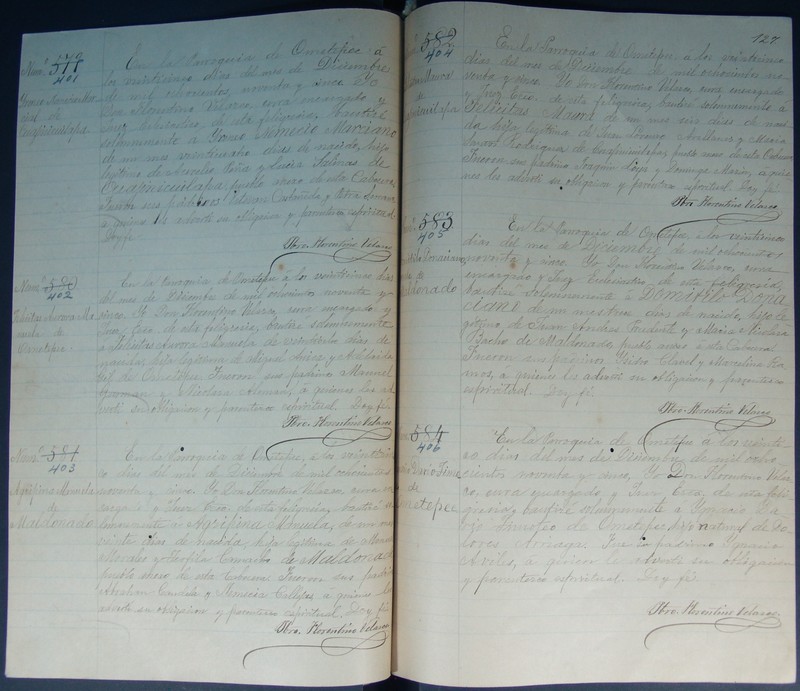 Num.º 579
401
de
En la Parroquia de Ometepec á
los veinticinco dias del mes de Diciembre
de mil ochocientos, noventa y cinco. Yo
Don Florentino Velasco, cura encargado y
de esta feligresia, bautizé
solemnemente á Nemecio Marciano
de un mes veinticuatro dias de nacido, hijo
legitimo de y Lucia Salinas de
pueblo anexo de esta Cabecera.
Fueron sus padrinos y Petra
á quienes les advertí su obligacion y parentesco espiritual.
Doy fé.
Pbro. Florentino Velasco
Num.º 580
402
Aurora Ma
nuela de
Ometepec
En la Parroquia de Ometepec á los veinticinco dias
del mes de Diciembre de mil ochocientos noventa y
cinco. Yo Don Florentino Velasco, cura encargado y
Juez Ecco. de esta feligresia, bautizé solemnemente
á Aurora Manuela de veinticinco dias de
nacida, hija legitima de Miguel y Adelaida
de Ometepec. Fueron sus padrinos Manuel
Guzman y Nicolasa Aleman, á quienes les ad
vertí su obligacion y parentesco espiritual. Doy fé.
Pbro. Florentino Velasco
Num.º 581
403
Agripina Manuela
de
Maldonado
En la Parroquia de Ometepec, á los veinticin
co dias del mes de Diciembre de mil ochocientos
noventa y cinco. Yo Don Florentino Velasco, cura en
cargado y Juez Ecco. de esta feligresia, bautizé so
lemnemente á Agripina Manuela, de un mes
veinte dias de nacida, hija legitima de
Morales y de Maldonado
pueblo anexo de esta Cabecera. Fueron sus padrinos
y á quienes les
advertí su obligacion y parentesco espiritual. Doy fé.
Pbro. Florentino Velasco
127
582
404
de
En la Parroquia de Ometepec, á los veinticinco
dias del mes de Diciembre de mil ochocientos no
venta y cinco. Yo Don Florentino Velasco, cura encargado
y Juez Ecco. de esta feligresia, bautizé solemnemente á
Felicitas Maura de un mes seis dias de naci
da hija legitima de Juan Arellanes y Maria
Rodriguez de pueblo anexo de esta Cabecera.
Fueron sus padrinos Joaquin y Dominga á quie
nes les advertí su obligacion y parentesco espiritual. Doy fé.
Pbro. Florentino Velasco
583
405
Donaciano
de
Maldonado
En la Parroquia de Ometepec, á los veinticinco
dias del mes de Diciembre de mil ochocientos
noventa y cinco. Yo Don Florentino Velasco, cura
encargado y Juez Eclesiastico de esta feligresia,
bautizé solemnemente á Domitilo Dona
ciano de un mes dias de nacido, hijo le
gitimo de Juan y Maria
de Maldonado, pueblo anexo á esta Cabecera.
Fueron sus padrinos Clavel y Marcelina Ra
mos, á quienes les advertí su obligacion y parentesco
espiritual. Doy fé.
Pbro. Florentino Velasco
584
406
Dario Timo
de
Ometepec
En la Parroquia de Ometepec á los veintecin
co dias del mes de Diciembre de mil ocho
cientos noventa y cinco. Yo Don Florentino Velas
co, cura encargado, y Juez Ecco. de esta feli
gresia, bautizé solemnemente á Ygnacio Da
rio Timoteo de Ometepec, hijo natural de Do
lores Arriaga. Fue su padrino Ygnacio
Aviles, á quien le advertí su obligacion
y parentesco espiritual. Doy fé.
Pbro. Florentino Velasco